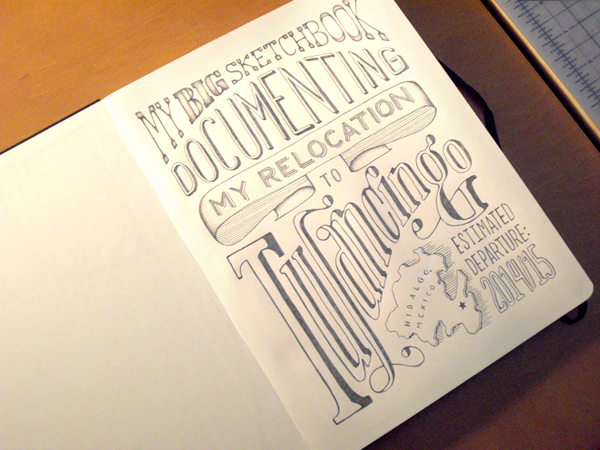 MY BIG SKETCHBOOK
DOCUMENTING
MY RELOCATION
TO
Tulancingo
HIDALGO,
MEXICO
ESTIMATED
DEPARTURE:
2014/15